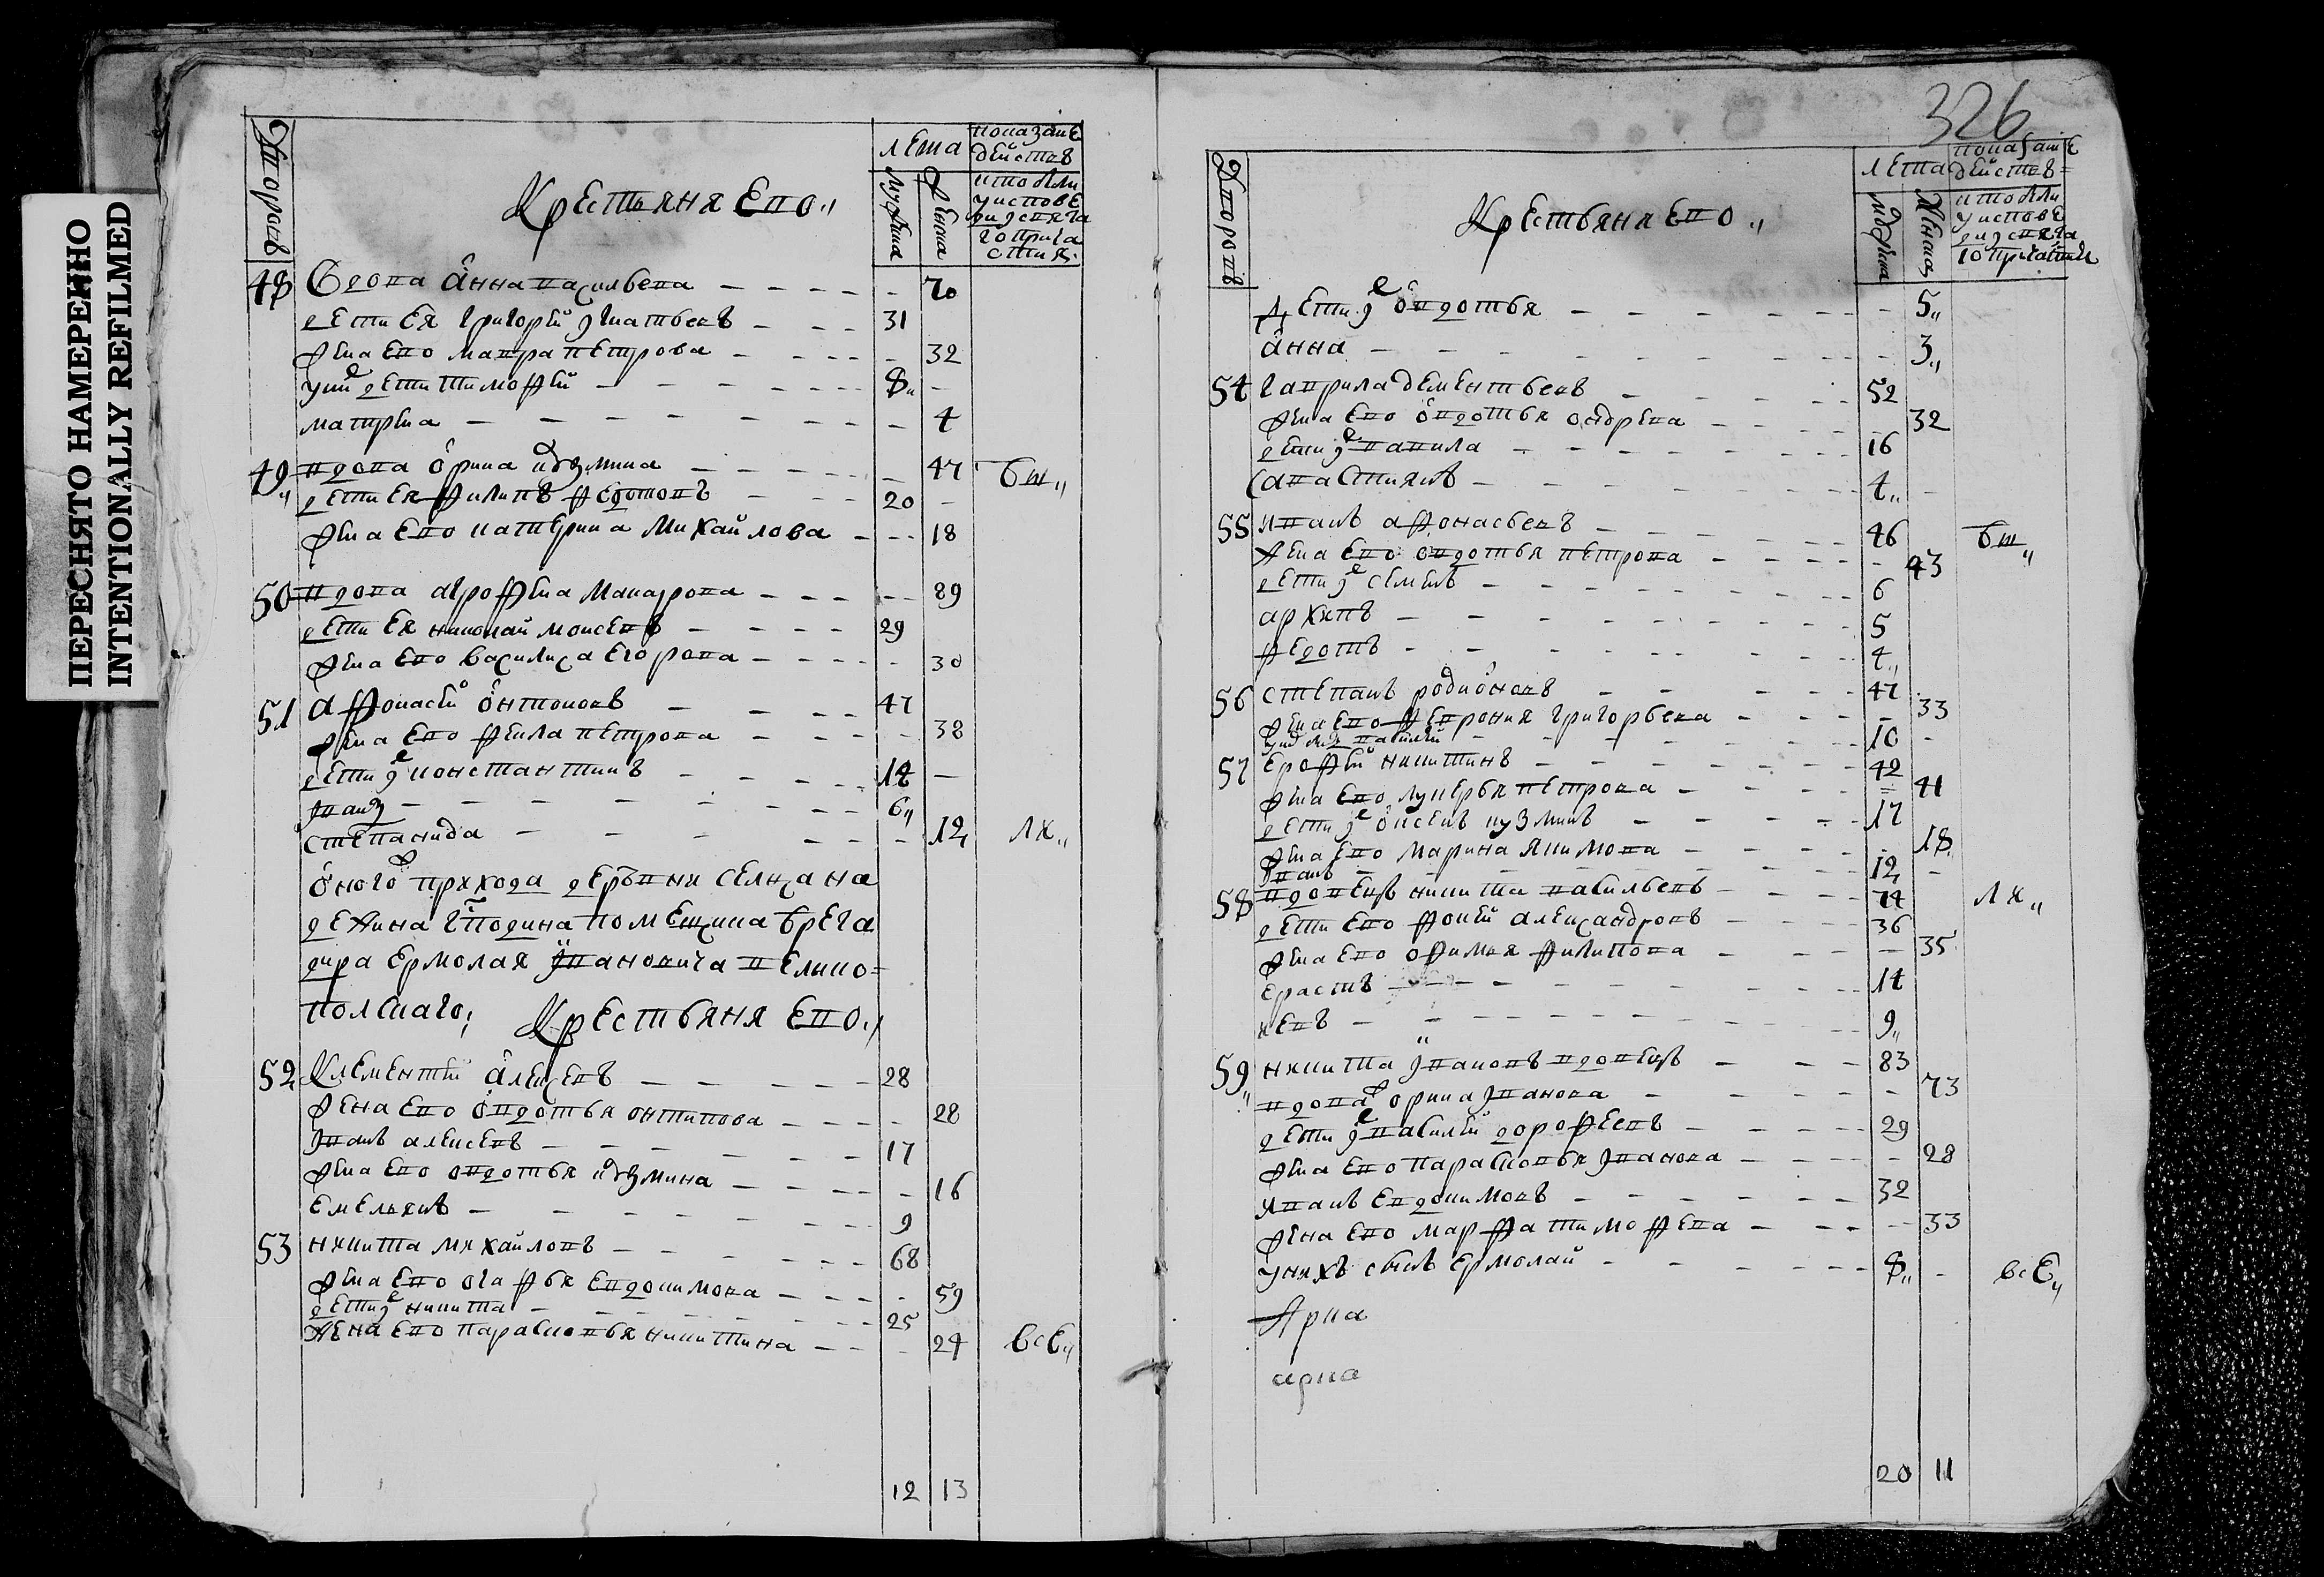 ПЕРЕСНЯТО НАМЕРЕННО
INTENTIONALLY REFILMED
дворовъ
Крестьяня ево
лета
мужска
женска
показание
действ
кто были
у испове
ди и с̃вята
го прича
стия
48 вдова анна васильева 70
дети ея григорей игнатьевъ 31
жена ево мавра петрова 32
у них дети тимофей 8
матрена 4
49 вдова орина кузмина 47 бы
дети ея филипъ федотовъ 20
жена ево катерина михайлова 18
50 вдова аграфена макарова 89
дети ея николай моисевъ 29
жена ево василиса егорова 30
51 афонасей онтоновъ 47
жена ево фекла петрова 38
дети их констянтинъ 14
иванъ 6
степанида 12 лх
оного прихода деревни селца на
господина помещика брега
дира ермолая ивановича велико
полскаго крестьяня ево
52 клементей алексевъ 28
жена ево овдотья онтипова 28
иванъ алексевъ 17
жена ево овдотья кузмина 16
емельянъ 9
53 никита михайловъ 68
жена ево агафья евдокимова 59
дети их никита 25
жена ево парасковья никитина 24 все
12 13
326
дворовъ
Крестьяня ево
лета
мужска
женска
показание
действ
кто были
у испове
ди и с̃вята
го причастия
дети их овдотья 5
анна 3
54 гаврила дементьевъ 52
жена ево овдотья ондрева 32
дети их вавила 16
савастиянъ 4
55 иванъ афонасьевъ 46 бы
жена ево овдотья петрова 43
дети их семенъ 6
архипъ 5
федотъ 4
56 степанъ родионовъ 47
жена ево феврония григорьева 33
у них василей 10
57 ерофей никитинъ 42
жена ево лукерья петрова 41
дети их овсей кузминъ 17
жена ево марина якимова 18
иванъ 12
58 вдовецъ никита васильевъ 74 лх
дети ево фокей александровъ 36
жена ево офимья филипова 35
ерастъ 14
яевъ 9
59 никита ивановъ вдовецъ 83
вдова орина иванова 73
дети их василей дорофеевъ 29
жена ево парасковья иванова 28
иванъ евдокимовъ 32
жена ево марфа тимофева 33
у них сынъ ермолай 8 все
20 11